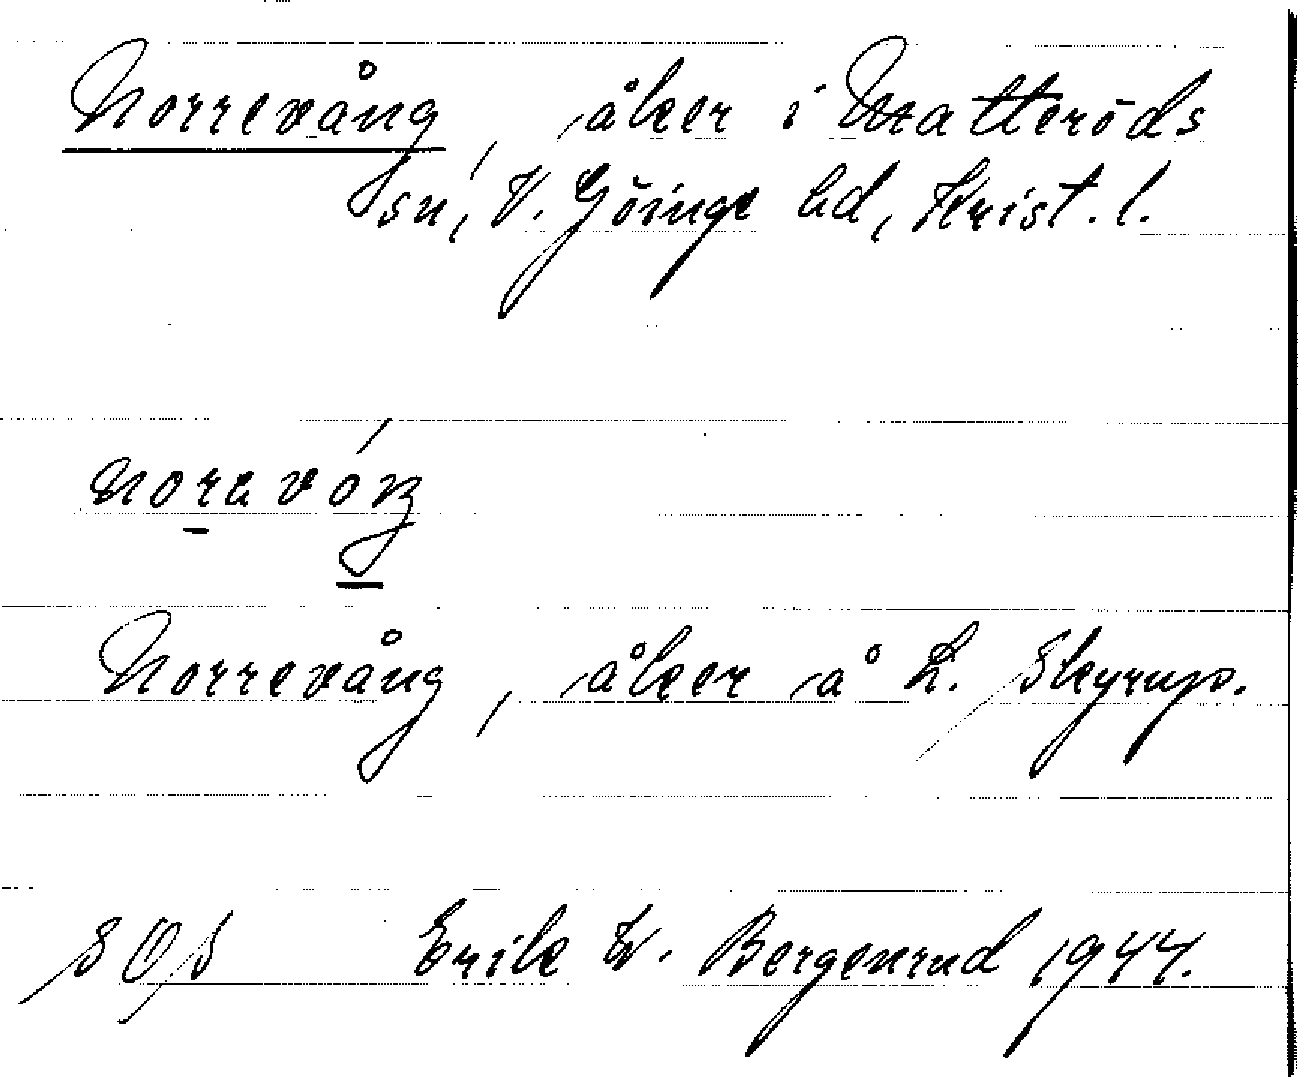 Norrevång, åker i Matteröds
sn, V. Göinge hd, Krist. l.
Norrevång, åker å L. Skyrup.
SOS Erik W. Bergenrud 1944.